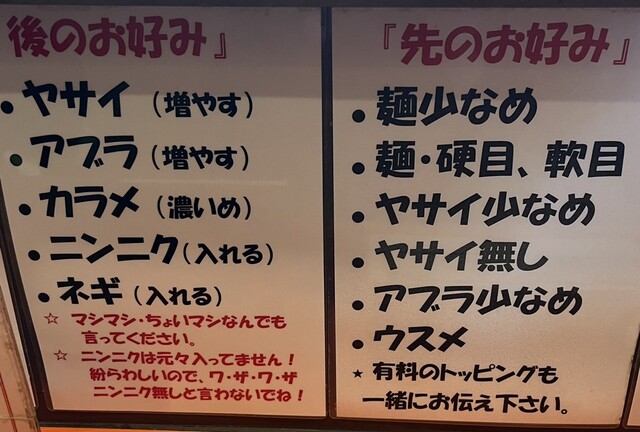 後のお好み』
• ヤサイ（増やす）
• アブラ（増やす）
• カラメ（濃いめ）
• ニンニク（入れる）
• ネギ（入れる）
☆ マシマシ・ちょいマシなんでも
言ってください。
☆ ニンニクは元々入ってません！
紛らわしいので、ワ・ザ・ワ・ザ
ニンニク無しと言わないでね！
『先のお好み』
• 麺少なめ
• 麺・硬目、軟目
• ヤサイ少なめ
• ヤサイ無し
• アブラ少なめ
• ウスメ
★ 有料のトッピングも
一緒にお伝え下さい。